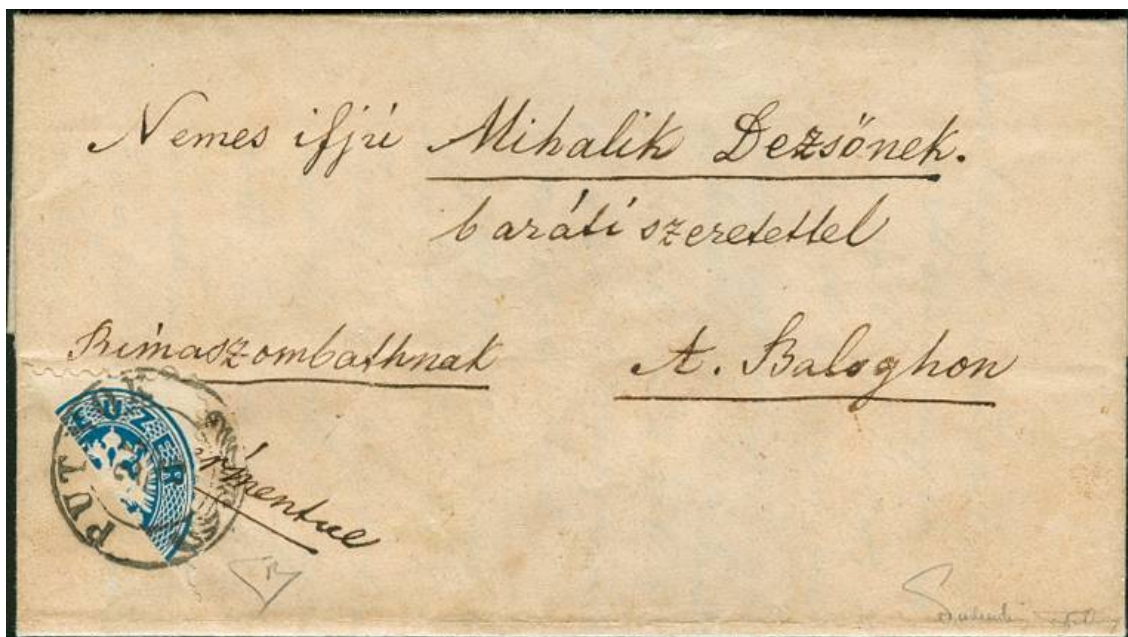 Nemes ifjú Mihalik Dezsőnek.
baráti szeretettel
Rimaszombathnak A. Baloghon
PUTNOK
EUZER
bérmentve